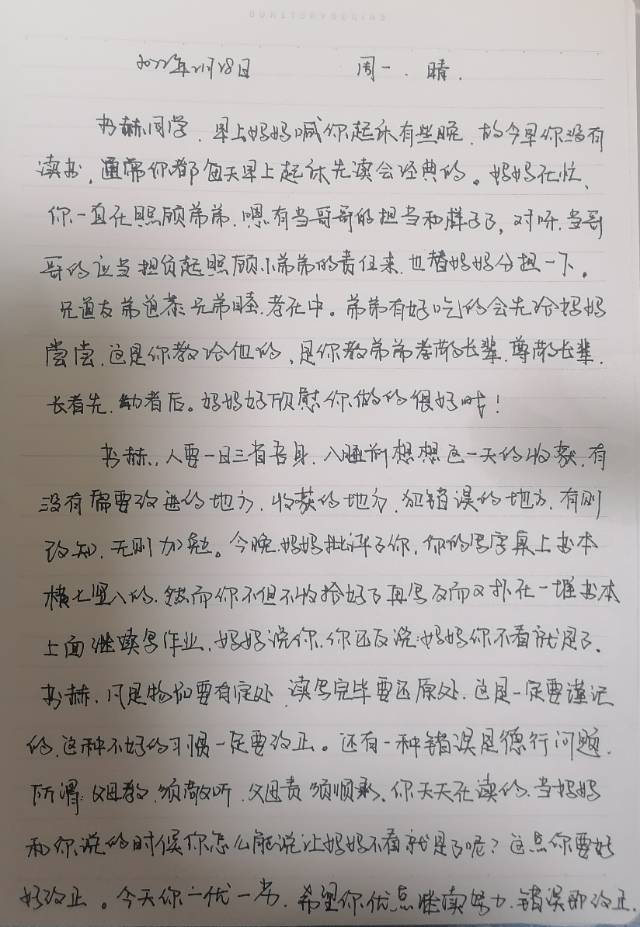 2022年11月28日 周一. 晴.
书赫同学, 早上妈妈喊你起床有些晚, 故今早你没有
读书, 通常你都每天早上起床先读会经典的。妈妈在忙,
你一直在照顾弟弟, 嗯有当哥哥的担当和样子了, 对呀, 当哥
哥的应当担负起照顾小弟弟的责任来, 也替妈妈分担一下。
兄道友 弟道恭 兄弟睦, 孝在中。弟弟有好吃的会先给妈妈
尝尝, 这是你教给他的, 是你教弟弟孝敬长辈, 尊敬长辈,
长者先, 幼者后。妈妈好欣慰你做的很好哦!
书赫, 人要一日三省吾身, 入睡前想想这一天的收获, 有
没有需要改进的地方, 收获的地方, 犯错误的地方, 有则
改知, 无则加勉。今晚妈妈批评了你, 你的写字桌上书本
横七竖八的, 然而你不但不收拾好了再写反而又扑在一堆书本
上面继续写作业, 妈妈说你, 你还反说妈妈你不看就是了,
书赫, 凡是物品要有定处, 读写完毕要还原处, 这是一定要谨记
的, 这种不好的习惯一定要改正。还有一种错误是德行问题,
所谓: 父母教, 须敬听, 父母责 须顺承, 你天天在读的, 当妈妈
和你说的时候你怎么能说让妈妈不看就是了呢? 这点你要好
好改正。今天你二优一劣, 希望你优点继续努力, 错误即改正.